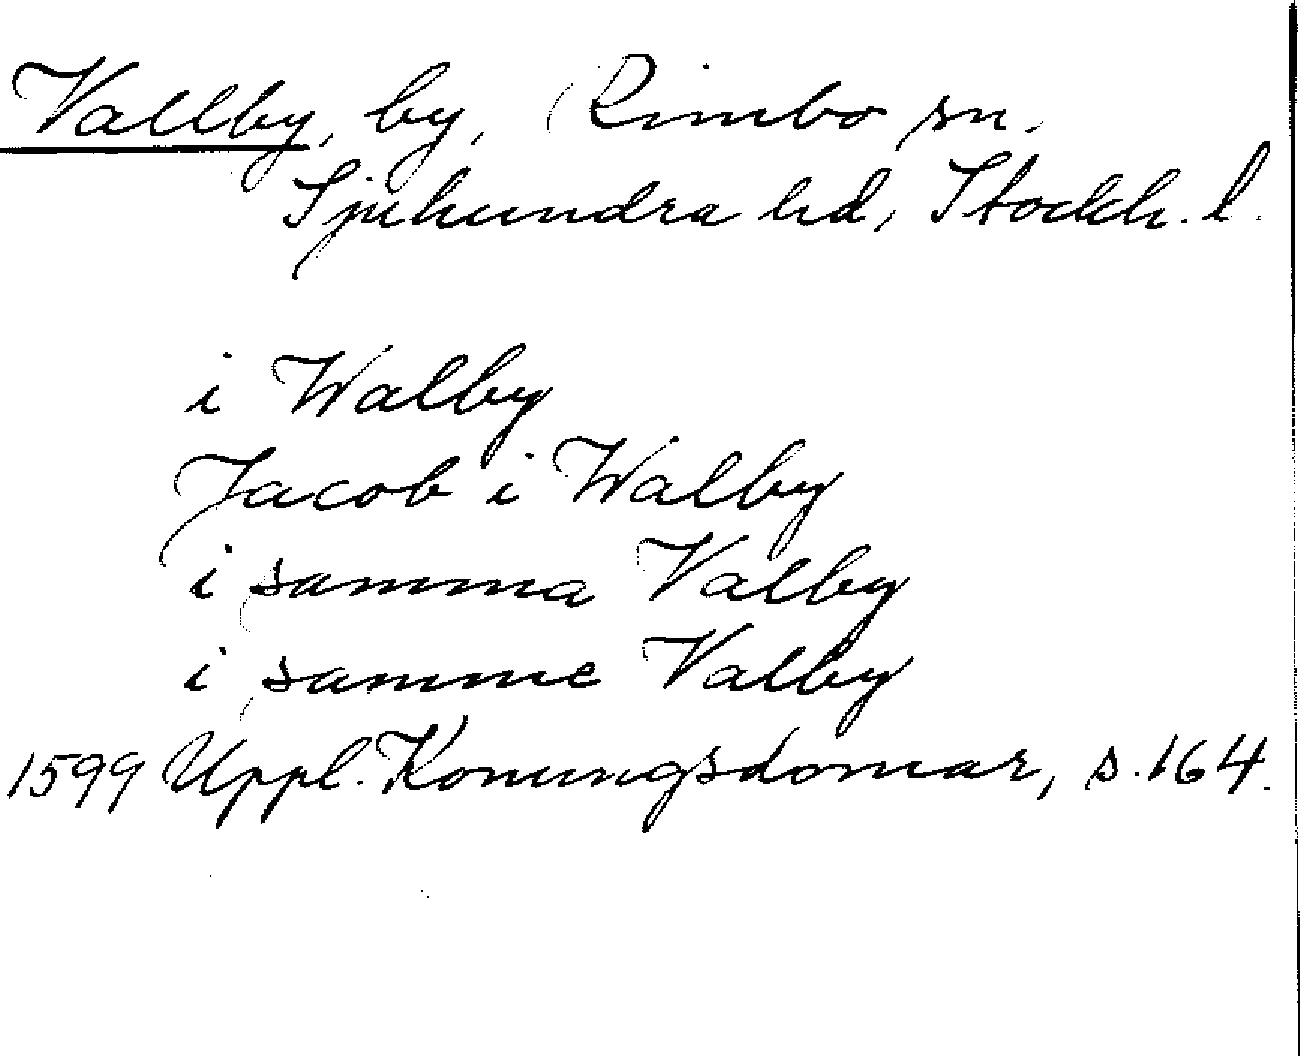 Vallby, by, Rimbo sn.
Sjuhundra hd, Stockh. l.
i Walby
Jacob i Walby
i samma Valby
i samme Valby
1599 Uppl. Konungsdomar, s. 164.